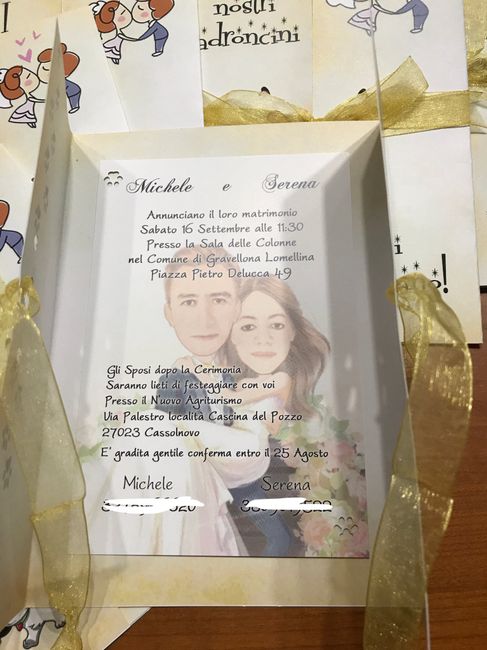 I
nostri
adroncini
Michele e Serena
Annunciano il loro matrimonio
Sabato 16 Settembre alle 11:30
Presso la Sala delle Colonne
nel Comune di Gravellona Lomellina
Piazza Pietro Delucca 49
Gli Sposi dopo la Cerimonia
Saranno lieti di festeggiare con voi
Presso il N'uovo Agriturismo
Via Palestro località Cascina del Pozzo
27023 Cassolnovo
E' gradita gentile conferma entro il 25 Agosto
Michele Serena